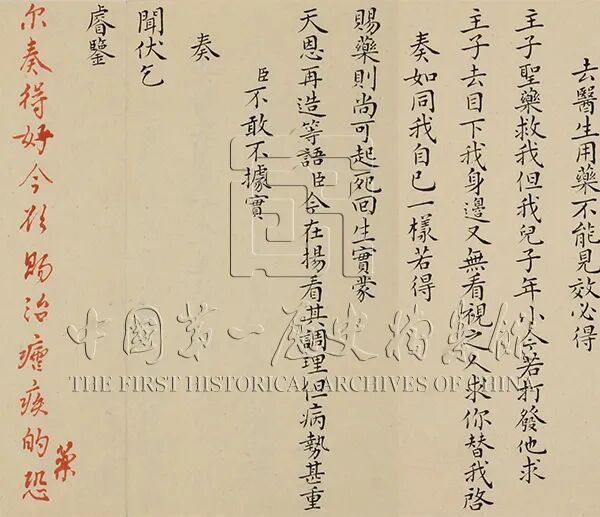 去醫生用藥不能見效必得
主子聖藥救我但我兒子年小今若打發他求
主子去目下我身邊又無看視之人求你替我啓
奏如同我自己一樣若得
賜藥則尚可起死回生實蒙
天恩再造等語臣今在揚看其調理但病勢甚重
臣不敢不據實
奏
聞伏乞
睿鑒
尔奏得好今欲賜治瘧疾的藥恐
中国第一历史档案馆
THE FIRST HISTORICAL ARCHIVES OF CHINA